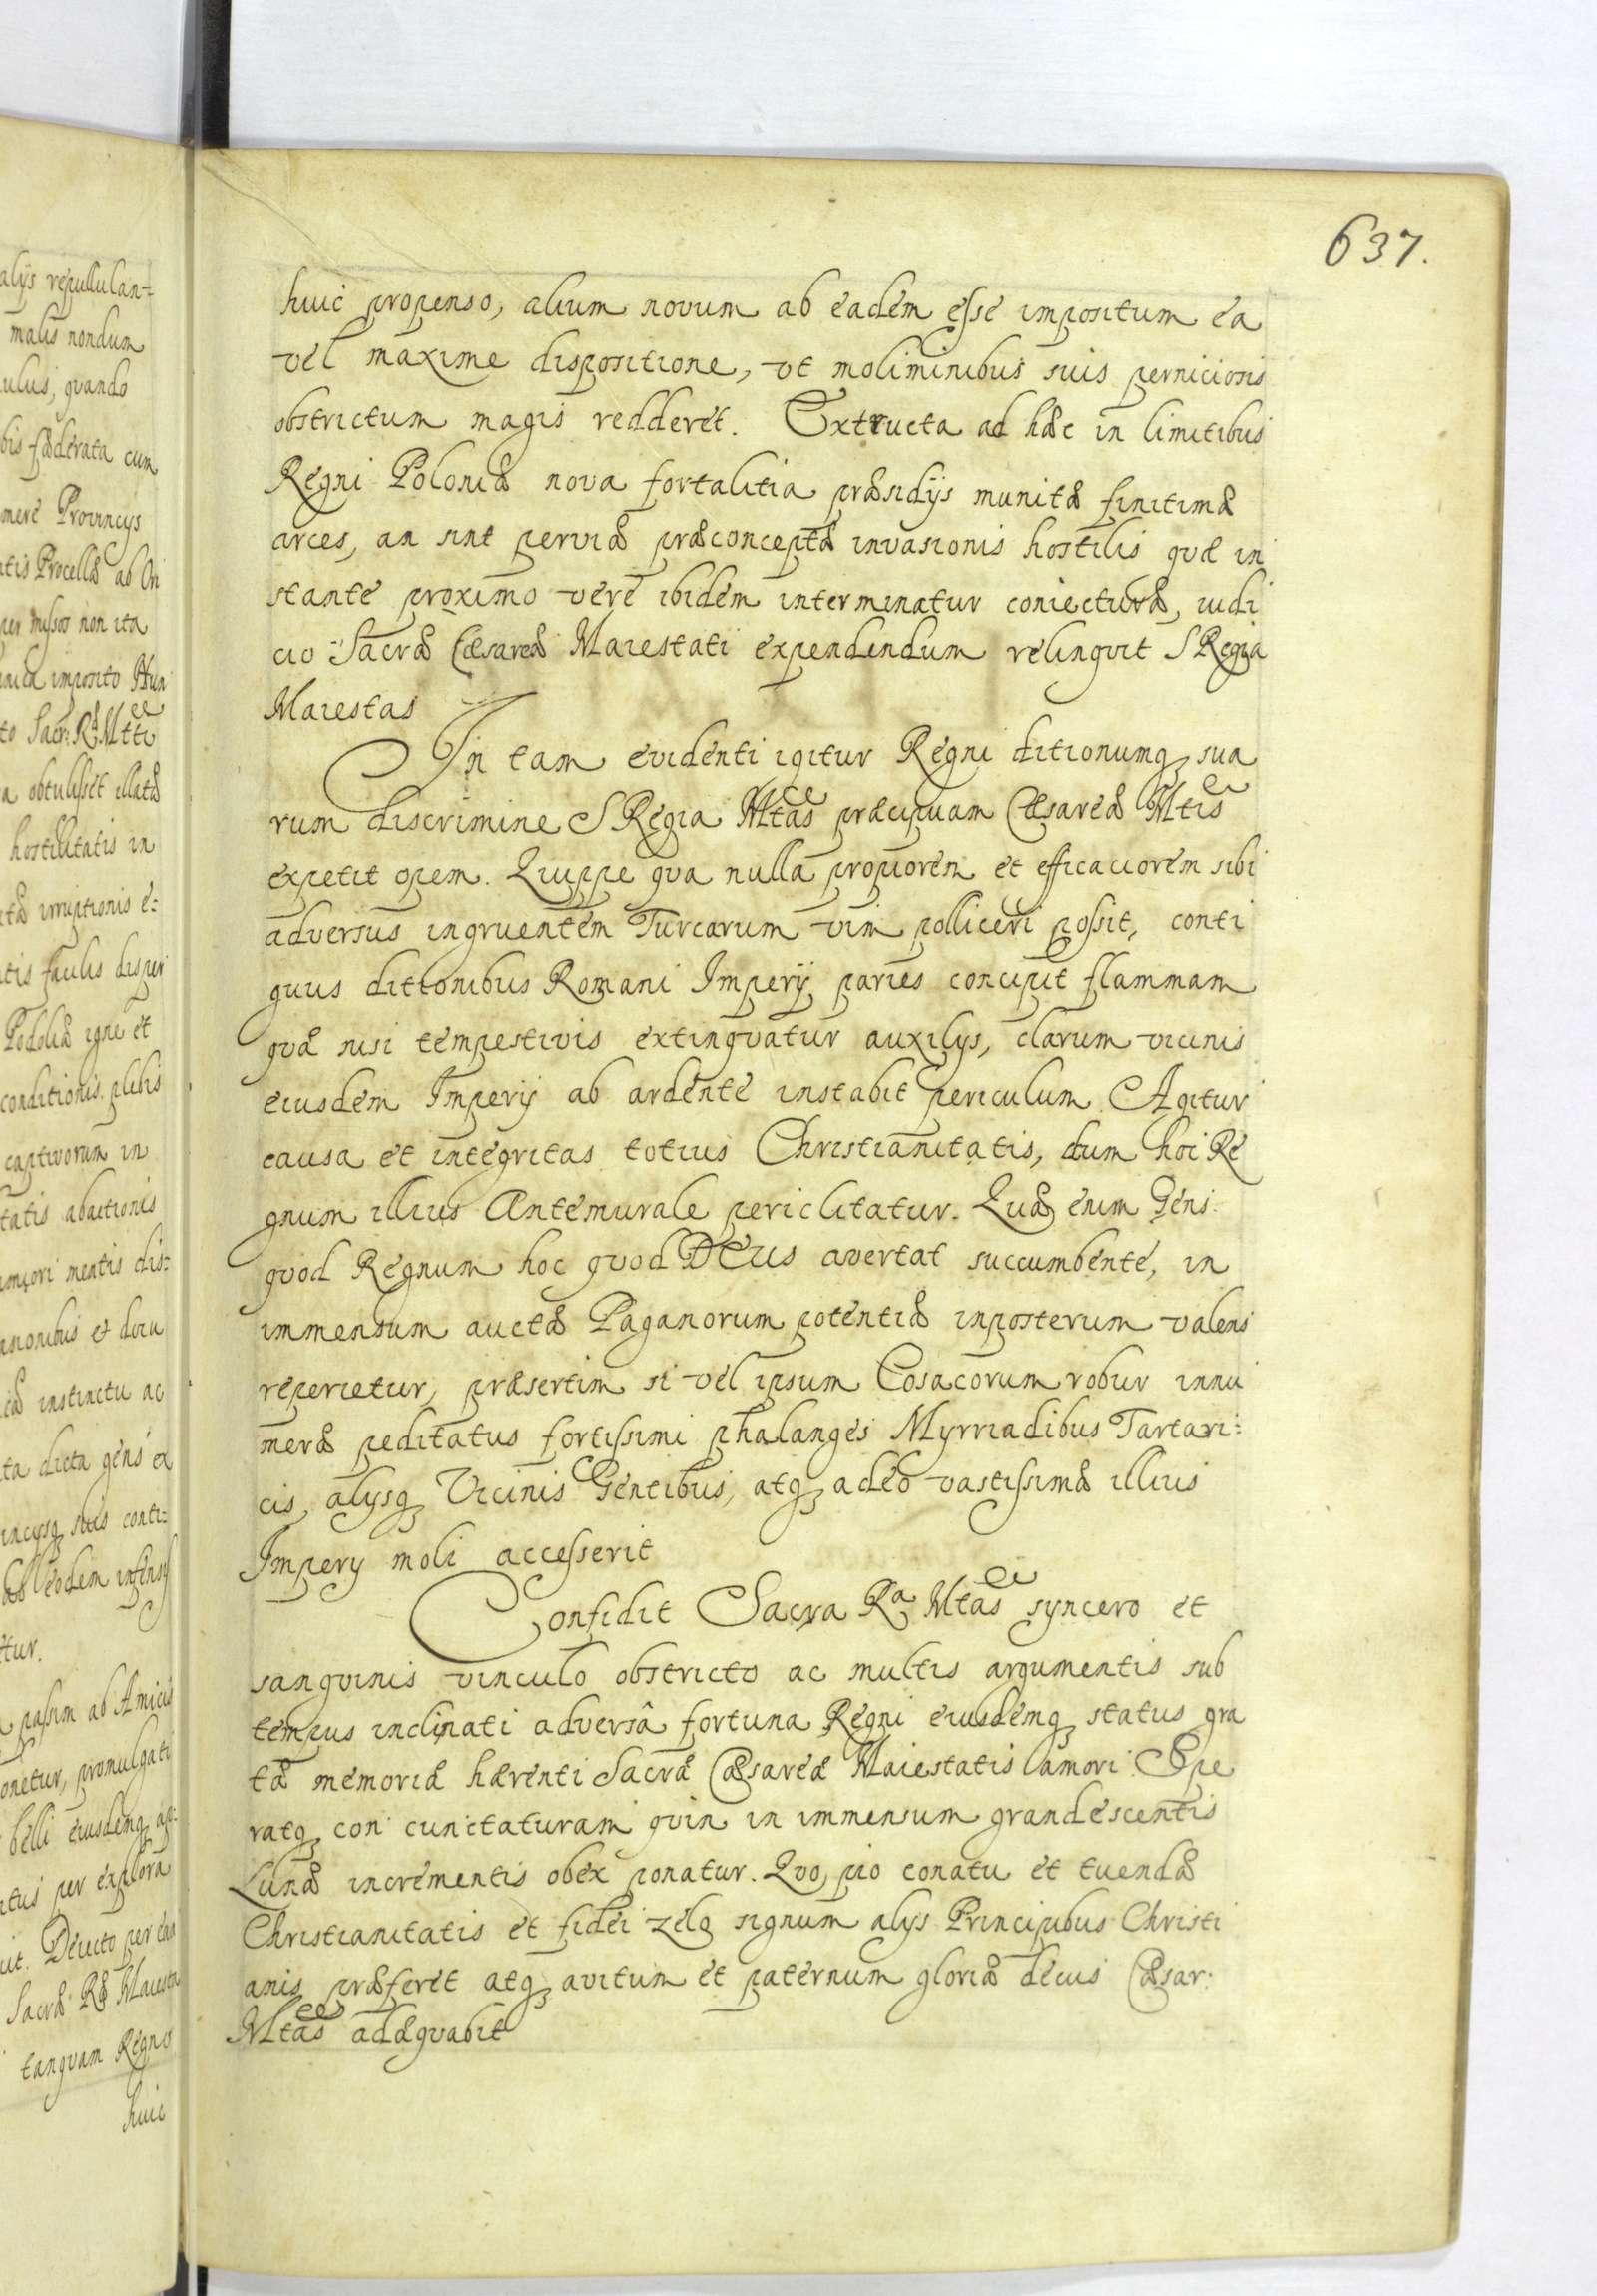 637.
huic propenso, alium novum ab eadem esse impositum ea
vel maxime dispositione, vt moliminibus suis perniciosis
obstrictum magis redderet. Extructa ad hæc in limitibus
Regni Poloniæ nova fortalitia præsidijs munitæ finitimæ
arces, an sint perviæ præconceptæ invasionis hostilis quæ in
stante proximo vere ibidem interminatur coniecturæ, iudi
cio Sacræ Cæsareæ Maiestati expendendum relinquit S Regia
Maiestas
In tam evidenti igitur Regni ditionumq sua
rum discrimine S Regia Mtas præcipuam Cæsareæ Mtis
expetit opem. Quippe qua nulla propiorem et efficaciorem sibi
adversus ingruentem Turcarum vim polliceri possit, conti
guus ditionibus Romani Imperij paries concipit flammam
quæ nisi tempestivis extinguatur auxilijs, clarum vicinis
eiusdem Imperij ab ardente instabit periculum. Agitur
causa et integritas totius Christianitatis, dum hoc Re
gnum illius Antemurale periclitatur. Quæ enim Gens
quod Regnum hoc quod DEus avertat succumbente, in
immensum auctæ Paganorum potentiæ inposterum valens
reperietur, præsertim si vel ipsum Cosacorum robur innu
meræ peditatus fortissimi phalanges Myrriadibus Tartari:
cis, alysq Vicinis Gentibus, atq adeo vastissimæ illius
Impery moli accesserit
Confidit Sacra Ra Mtas syncero et
sanguinis vinculo obstricto ac multis argumentis sub
tempus inclinati adversâ fortuna Regni eiusdemq status gra
tæ memoriæ hærenti Sacræ Cæsareæ Maiestatis amori. Spe
ratq con cunctaturam quin in immensum grandescentis
Lunæ incrementis obex ponatur. Quo pio conatu et tuendæ
Christianitatis et fidei zelo signum alys Principibus Christi
anis præferet atq avitum et paternum gloriæ decus Cæsar:
Mtas adæquabit
alijs repullulan=
malis nondum
quando
fæderata cum
Provincys
Procellæ ab Ori
non ita
imposito Hun
Sacr: Ræ Mtti
obtulisset illatæ
hostilitatis in
irruptionis e:
faculis disper
Podoliæ igne et
conditionis plebis
captivorum in
abactionis
mentis dis:
et docu
instinctu ac
dicta gens ex
suis conti:
eodem infensi
passim ab Amicis
promulgati
belli eiusdemq
per explora
Devicto per eas
Sacræ Ræ Maiesta
tanquam Regno
huic